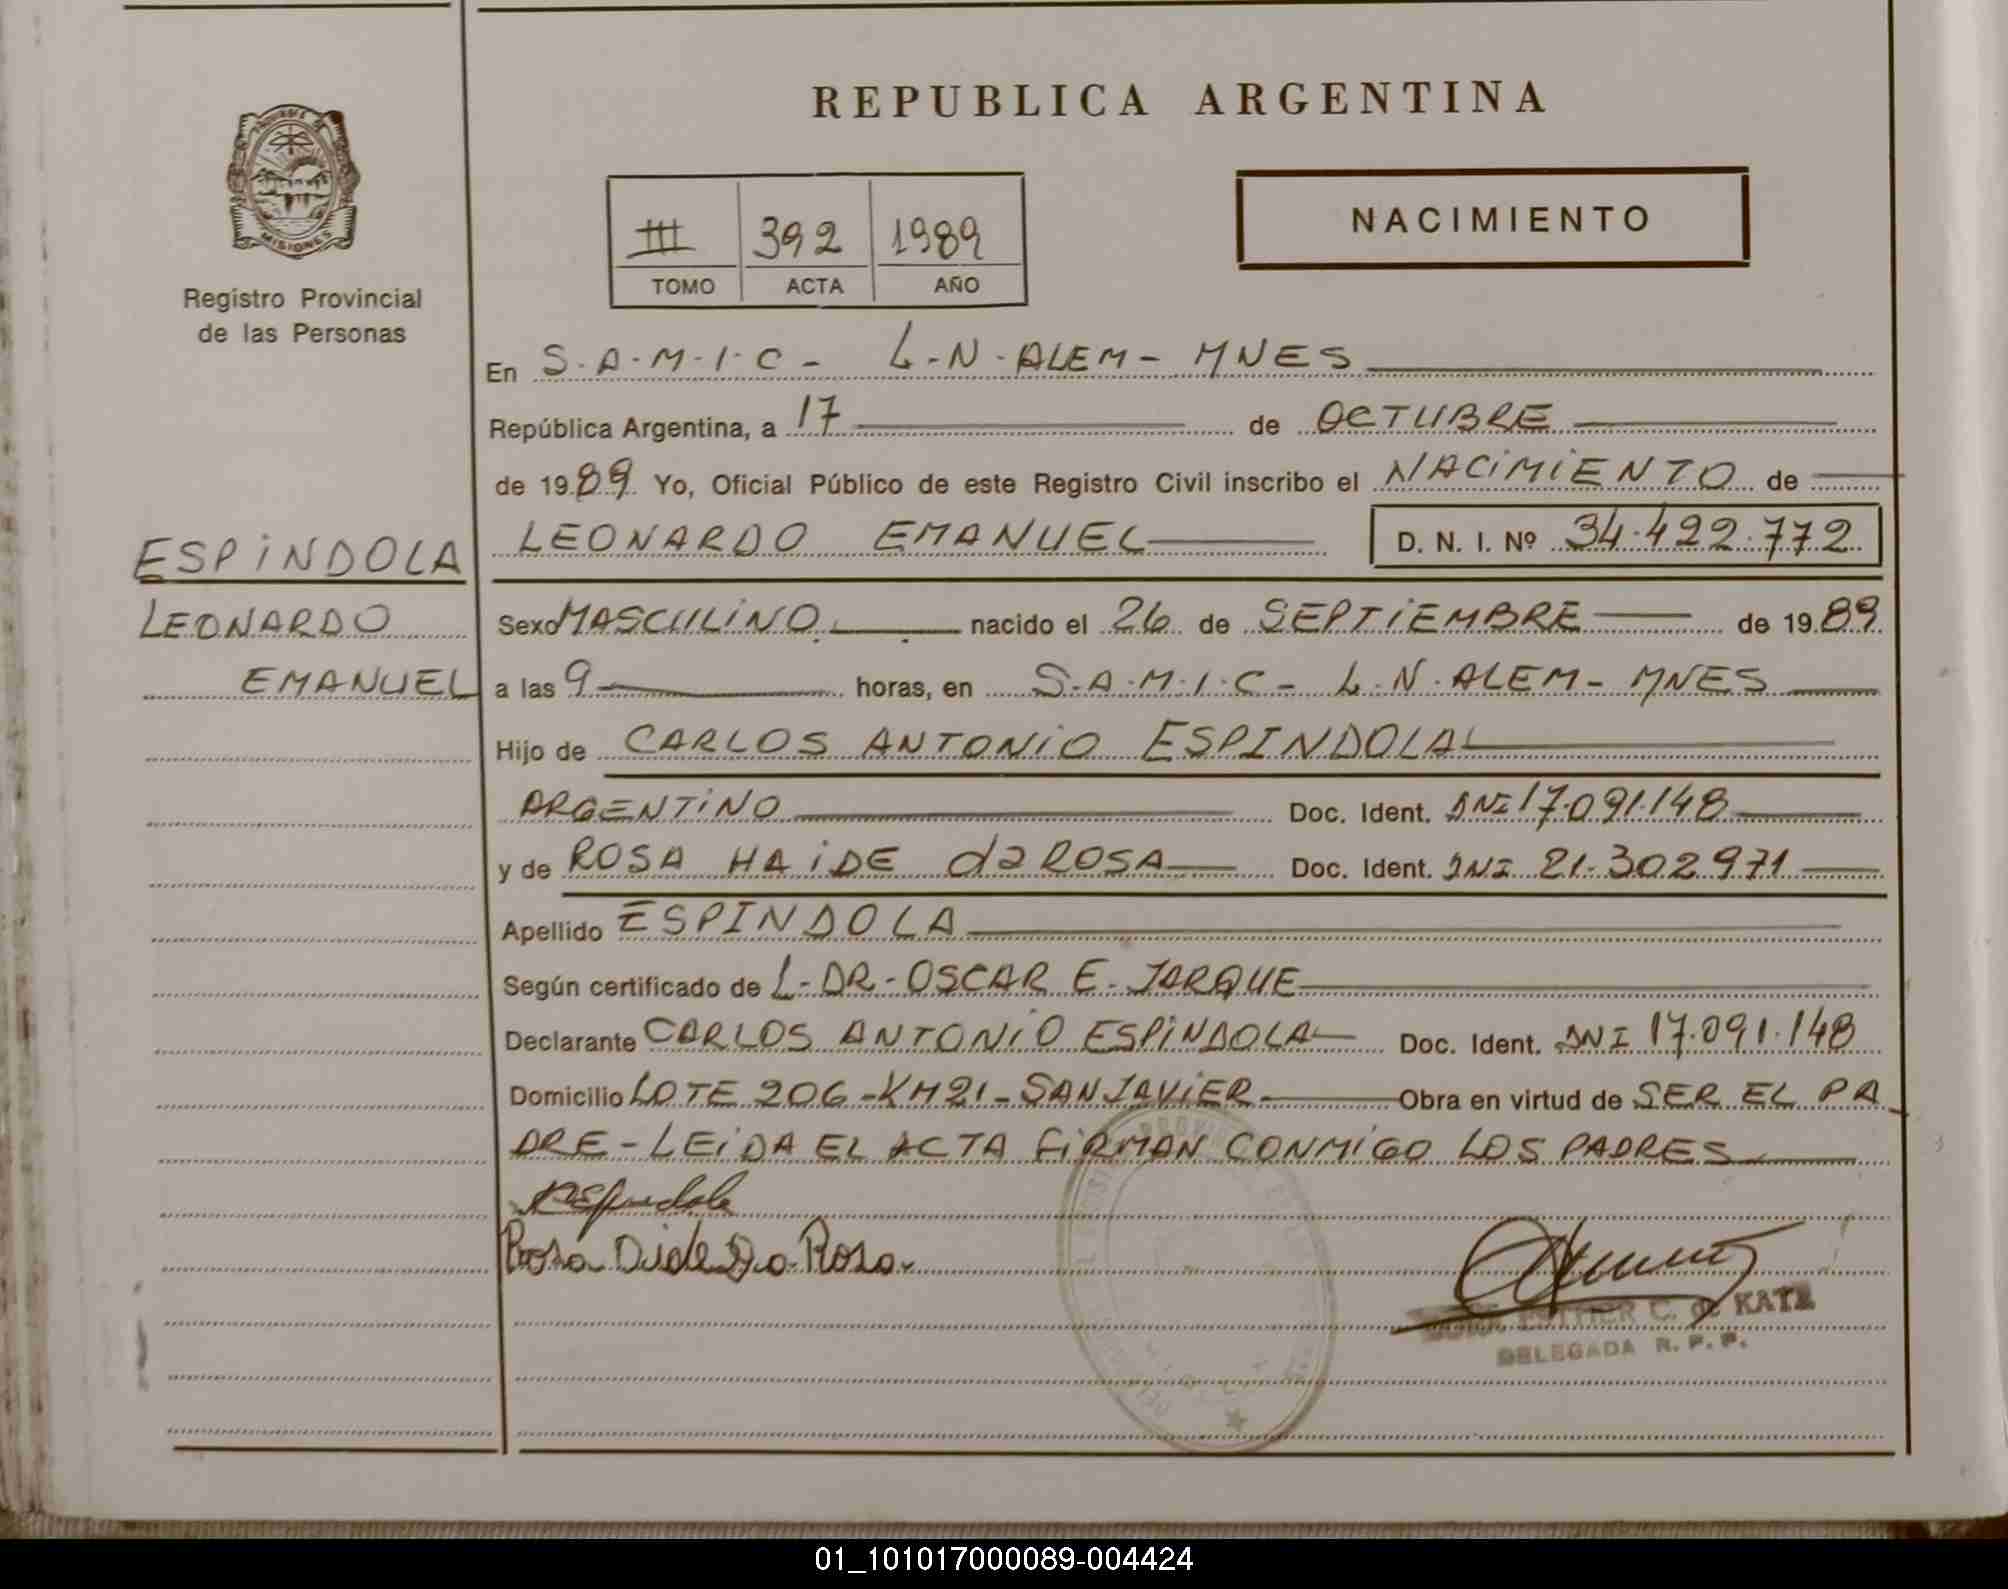 REPUBLICA ARGENTINA
MISIONES
Registro Provincial
de las Personas
III 392 1989
TOMO ACTA AÑO
NACIMIENTO
En S.A.M.I.C - L.N.ALEM - MNES
República Argentina, a 17 de OCTUBRE
de 1989 Yo, Oficial Público de este Registro Civil inscribo el NACIMIENTO de
LEONARDO EMANUEL D. N. I. Nº 34.422.772
ESPINDOLA
LEONARDO
EMANUEL
Sexo MASCULINO nacido el 26 de SEPTIEMBRE de 1989
a las 9 horas, en S.A.M.I.C - L.N.ALEM - MNES
Hijo de CARLOS ANTONIO ESPINDOLA
ARGENTINO Doc. Ident. DNI 17.091.148
y de ROSA HAIDE da ROSA Doc. Ident. DNI 21.302971
Apellido ESPINDOLA
Según certificado de L-DR-OSCAR E. JARQUE
Declarante CARLOS ANTONIO ESPINDOLA Doc. Ident. DNI 17.091.148
Domicilio LOTE 206-KM21-SAN JAVIER Obra en virtud de SER EL PA
DRE - LEIDA EL ACTA FIRMAN CONMIGO LOS PADRES
Rosa Dide Da Rosa
ESTHER C. de KATZ
DELEGADA R. P. P.
01_101017000089-004424